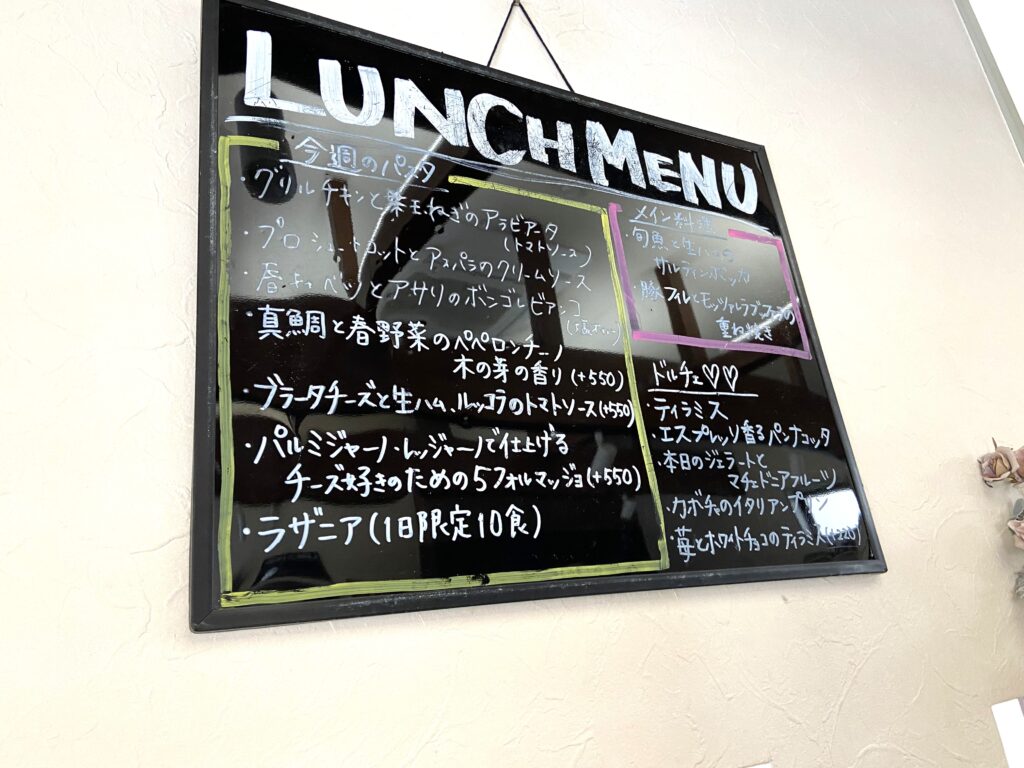 LUNCH MENU
今週のパスタ
・グリルチキンと紫玉ねぎのアラビアータ
(トマトソース)
・プロシュートコットとアスパラのクリームソース
・春キャベツとアサリのボンゴレビアンコ
・真鯛と春野菜のペペロンチーノ
木の芽の香り(+550)
・ブラータチーズと生ハム、ルッコラのトマトソース(+550)
・パルミジャーノ・レッジャーノで仕上げる
チーズ好きのための5フォルマッジョ(+550)
・ラザニア(1日限定10食)
メイン料理
・旬魚と生ハムの
サルティンボッカ
・豚フィレとモッツァレラブッファラの
重ね焼き
ドルチェ♡♡
・ティラミス
・エスプレッソ香るパンナコッタ
・本日のジェラートと
マチェドニアフルーツ
・カボチャのイタリアンプリン
・苺とホワイトチョコのティラミス(+220)